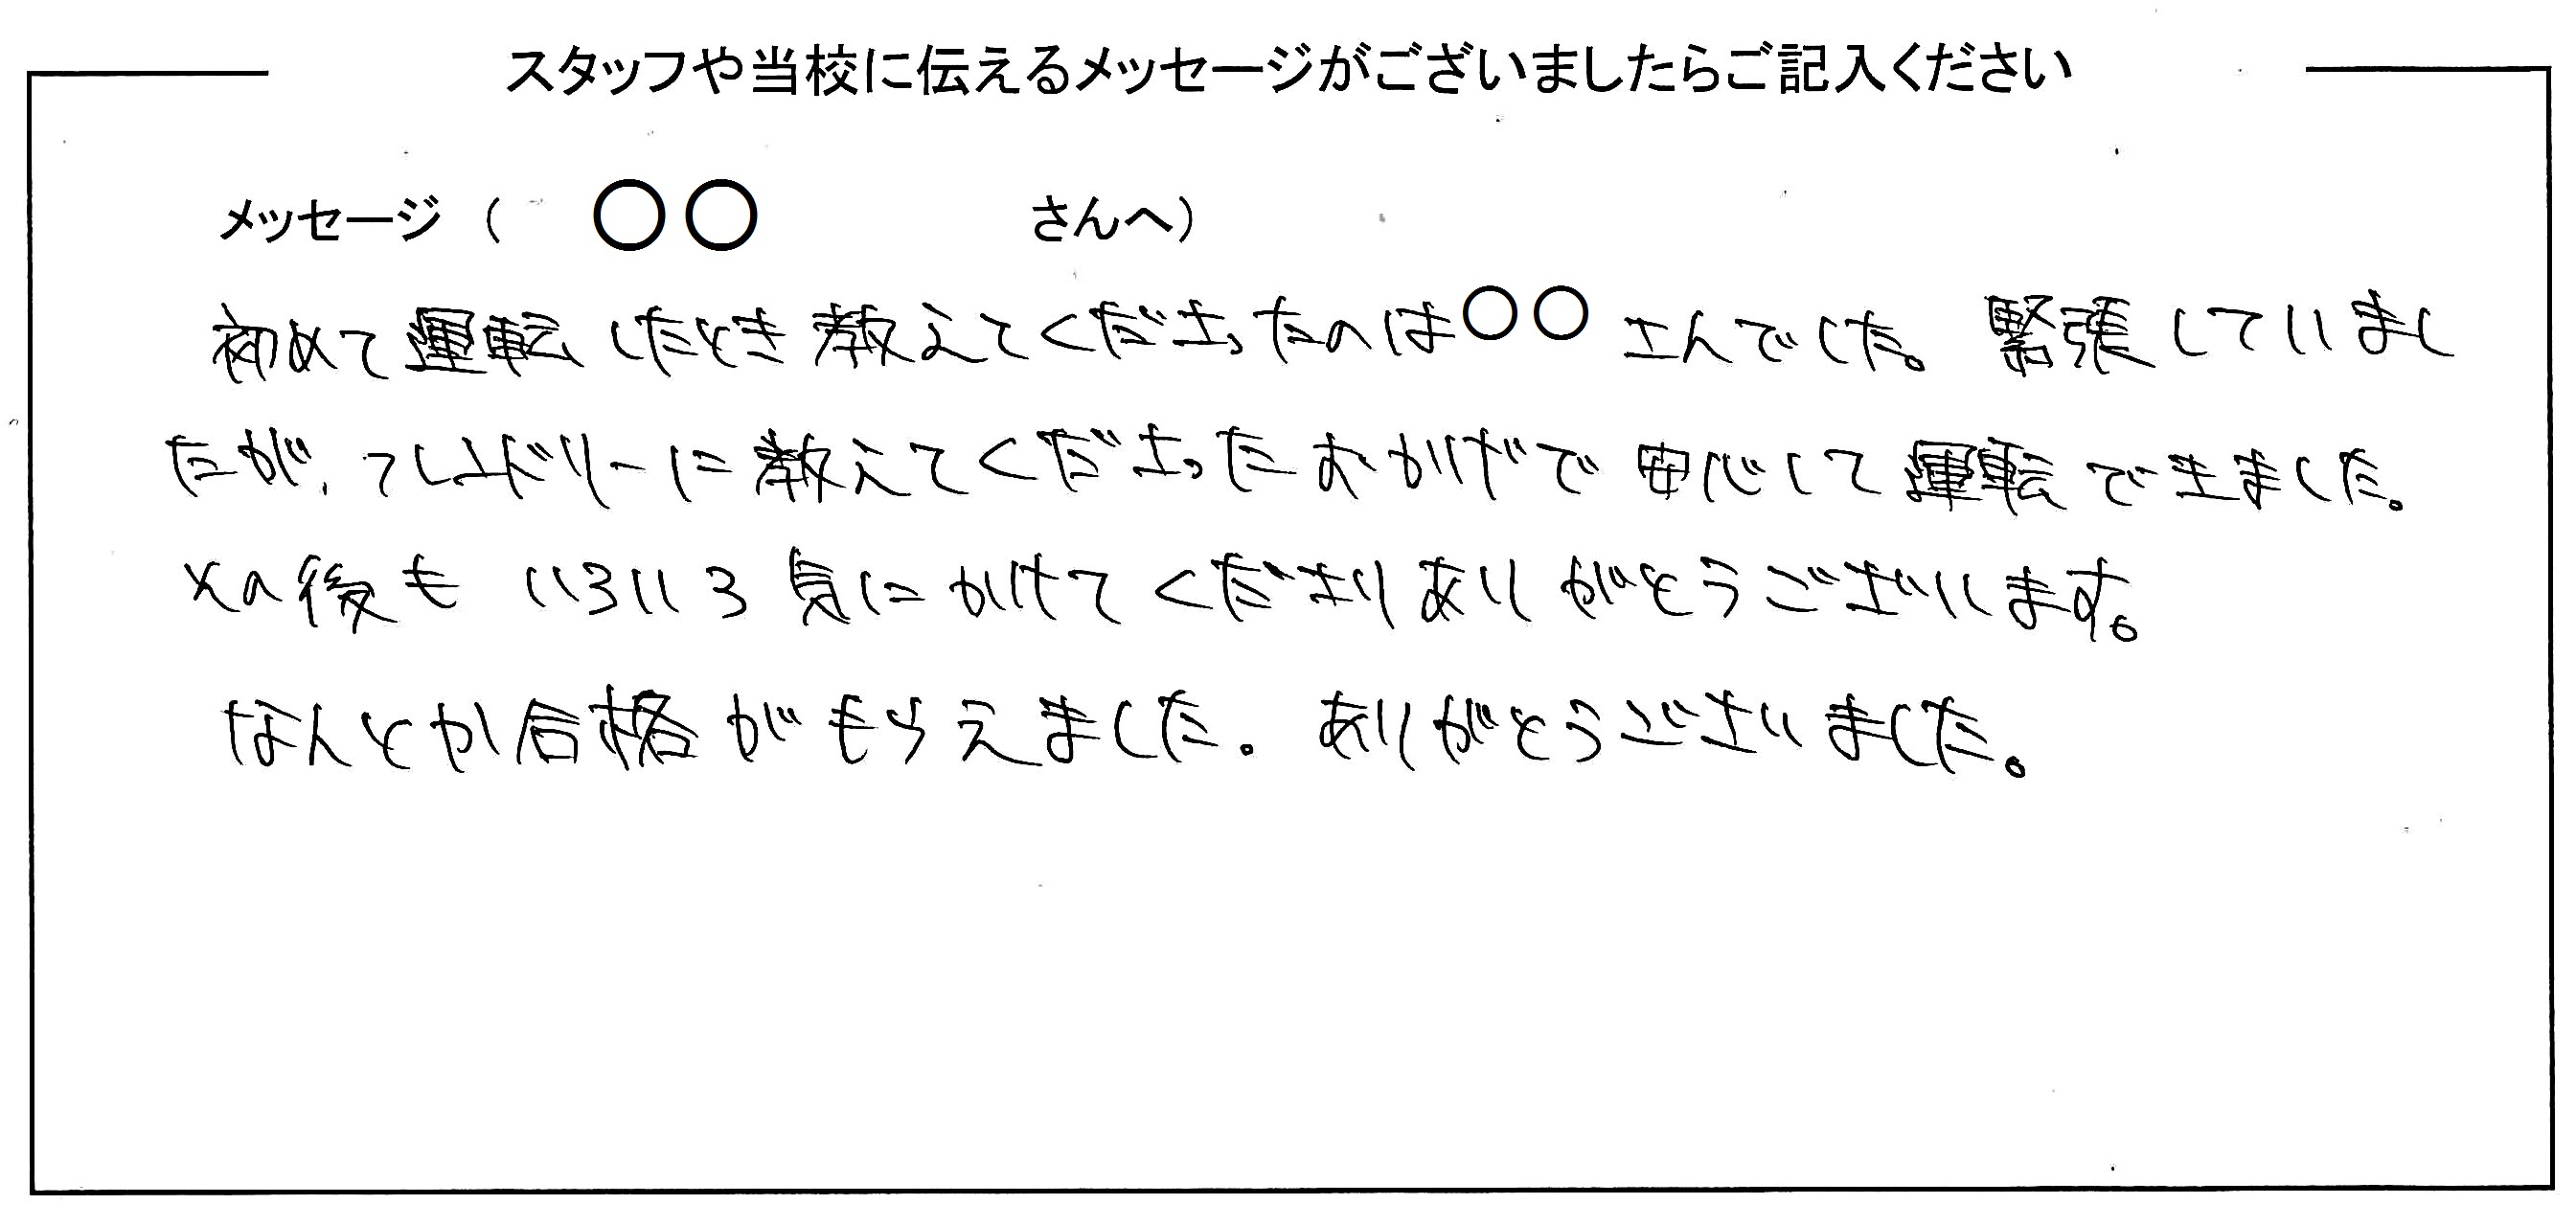 スタッフや当校に伝えるメッセージがございましたらご記入ください
メッセージ（ 〇〇 さんへ）
初めて運転したとき教えてくださったのは〇〇さんでした。緊張していまし
たが、フレンドリーに教えてくださったおかげで安心して運転できました。
その後もいろいろ気にかけてくださりありがとうございます。
なんとか合格がもらえました。ありがとうございました。